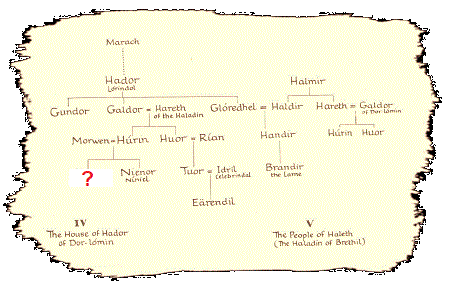 Marach
Hador
Lórindol
Halmir
Gundor Galdor = Hareth Glóredhel = Haldir Hareth = Galdor
of the Haladin
of Dor-lómin
Morwen = Húrin Huor = Rían Handir Húrin Huor
? Nienor
Níniel
Tuor = Idril
Celebrindal
Brandir
the Lame
Eärendil
IV
The House of Hador
of Dor-lómin
V
The People of Haleth
(The Haladin of Brethil)